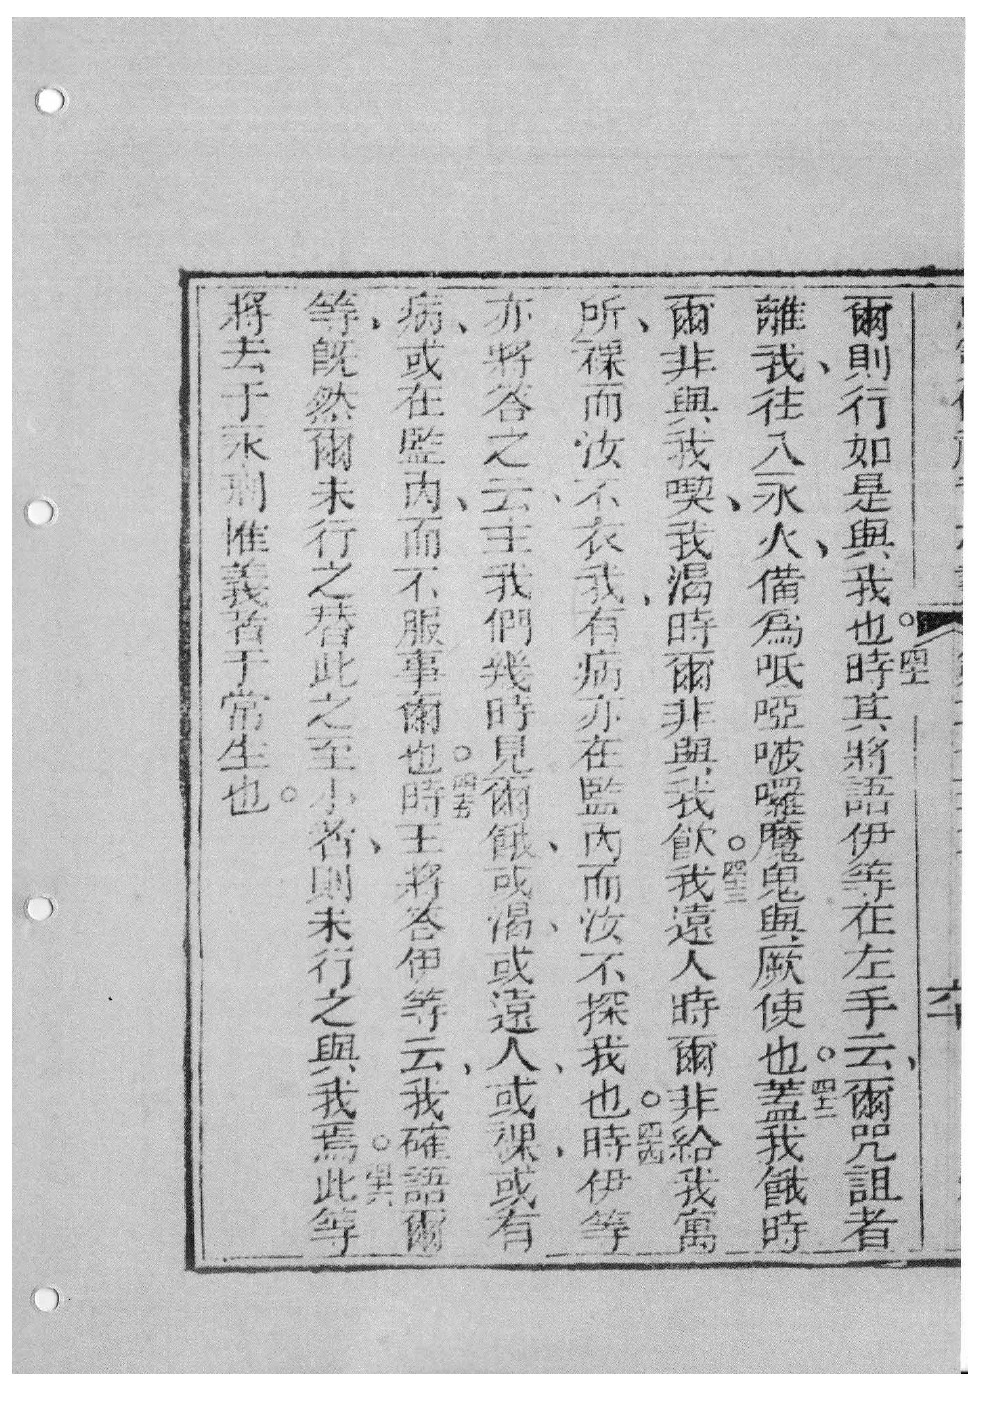 爾則行如是與我也。四一時其將語伊等在左手云、爾咒詛者
離我、往入永火、備爲呧啞啵囉魔鬼與厥使也。四二蓋我餓時
爾非與我喫、我渴時爾非與我飲。四三我遠人時爾非給我寓
所、裸而汝不衣我、有病亦在監內而汝不探我也。四四時伊等
亦將答之云、主我們幾時見爾餓、或渴、或遠人、或裸、或有
病、或在監內、而不服事爾也。四五時王將答伊等云、我確語爾
等、旣然爾未行之替此之至小者、則未行之與我焉。四六此等
將去于永刑惟義者于常生也。